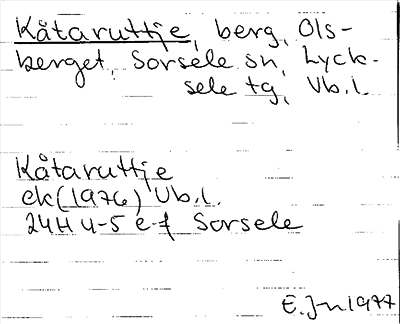 Kåtaruttje, berg, Ols-
berget, Sorsele sn, Lyck-
sele tg, Vb.l.
Kåtaruttje
ek (1976) Vb.l.
24H 4-5 e-f Sorsele
E. J-n 1977